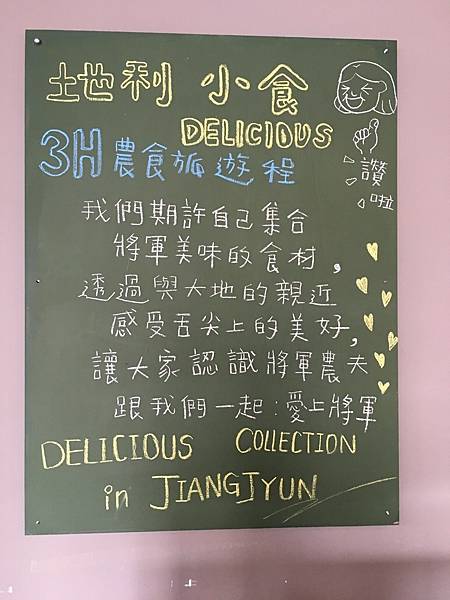 地利 小食
DELICIOUS
3H農食旅遊程
讚
啦
我們期許自己集合
將軍美味的食材,
透過與大地的親近
感受舌尖上的美好,
讓大家認識將軍農夫
跟我們一起:愛上將軍
DELICIOUS COLLECTION
in JIANGJYUN